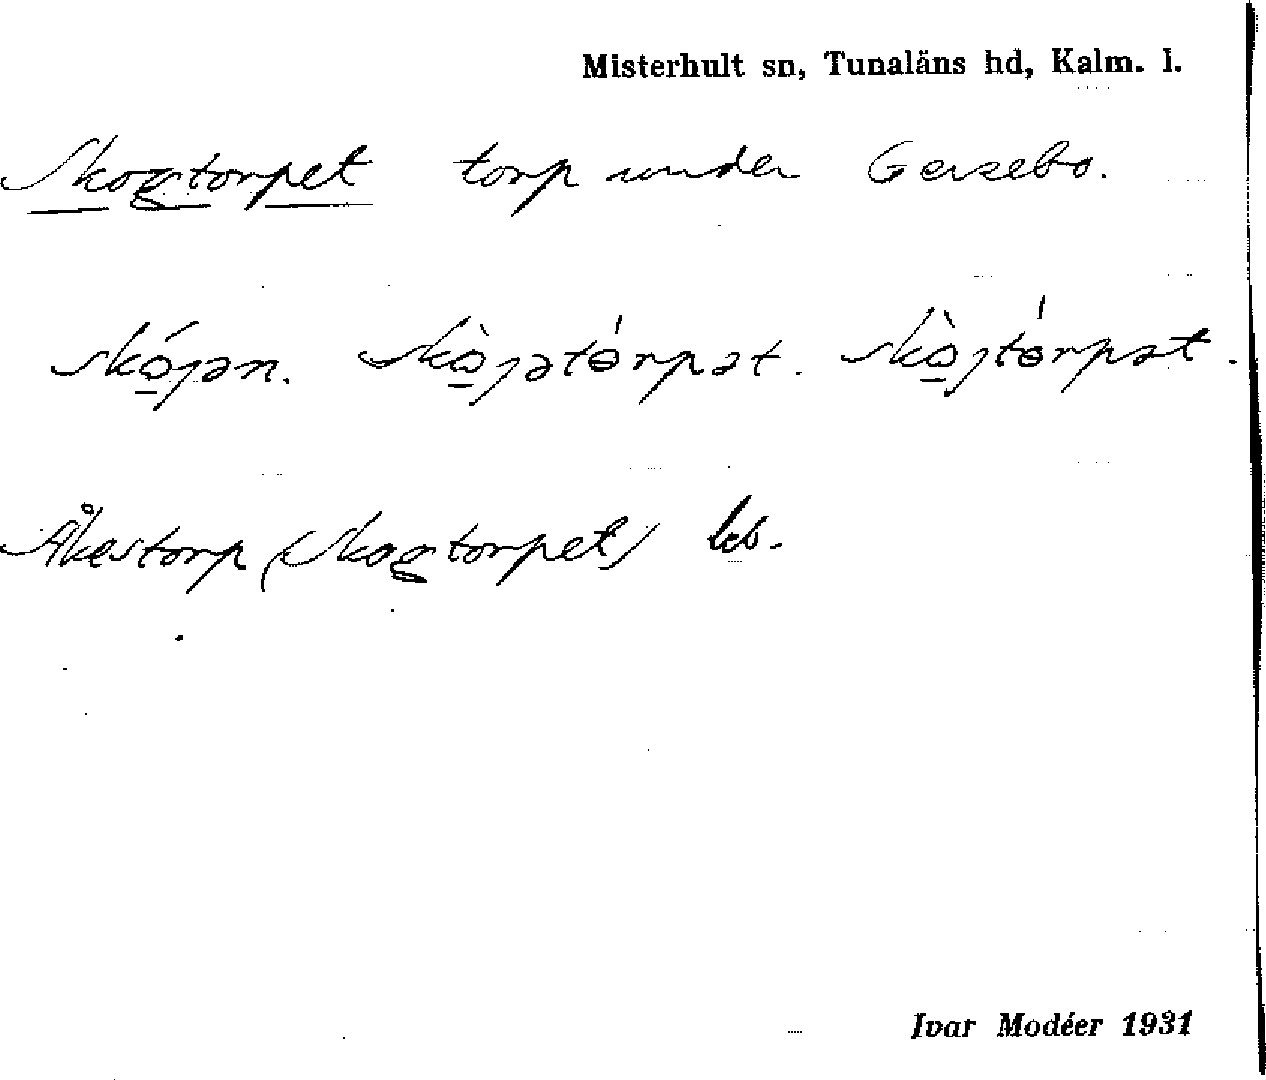 Misterhult sn, Tunaläns hd, Kalm. l.
Skogtorpet torp under Gersebo.
skó̲jən. skò̲jətɵ́rpət. skò̲jtɵ́rpət.
Åkestorp (Skogtorpet) kb.
Ivar Modéer 1931